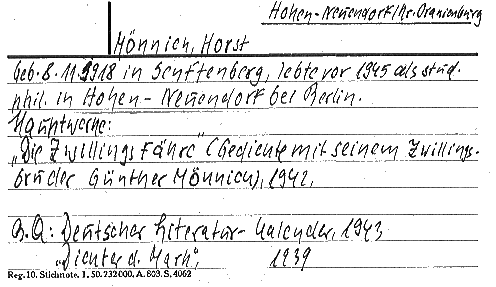 Hohen-Neuendorf/Kr. Oranienburg
Mönnich, Horst
Geb. 8. 11. 1918 in Senftenberg, lebte vor 1945 als stud.
phil. in Hohen-Neuendorf bei Berlin.
Hauptwerke:
„Die Zwillingsfähre" (Gedichte mit seinem Zwillings-
bruder Günther Mönnich), 1942,
B.Q.: Deutscher Literatur-Kalender, 1943,
„Dichter d. Mark", 1939
Reg. 10. Stichnote. 1. 50. 232000. A. 803. S. 4062